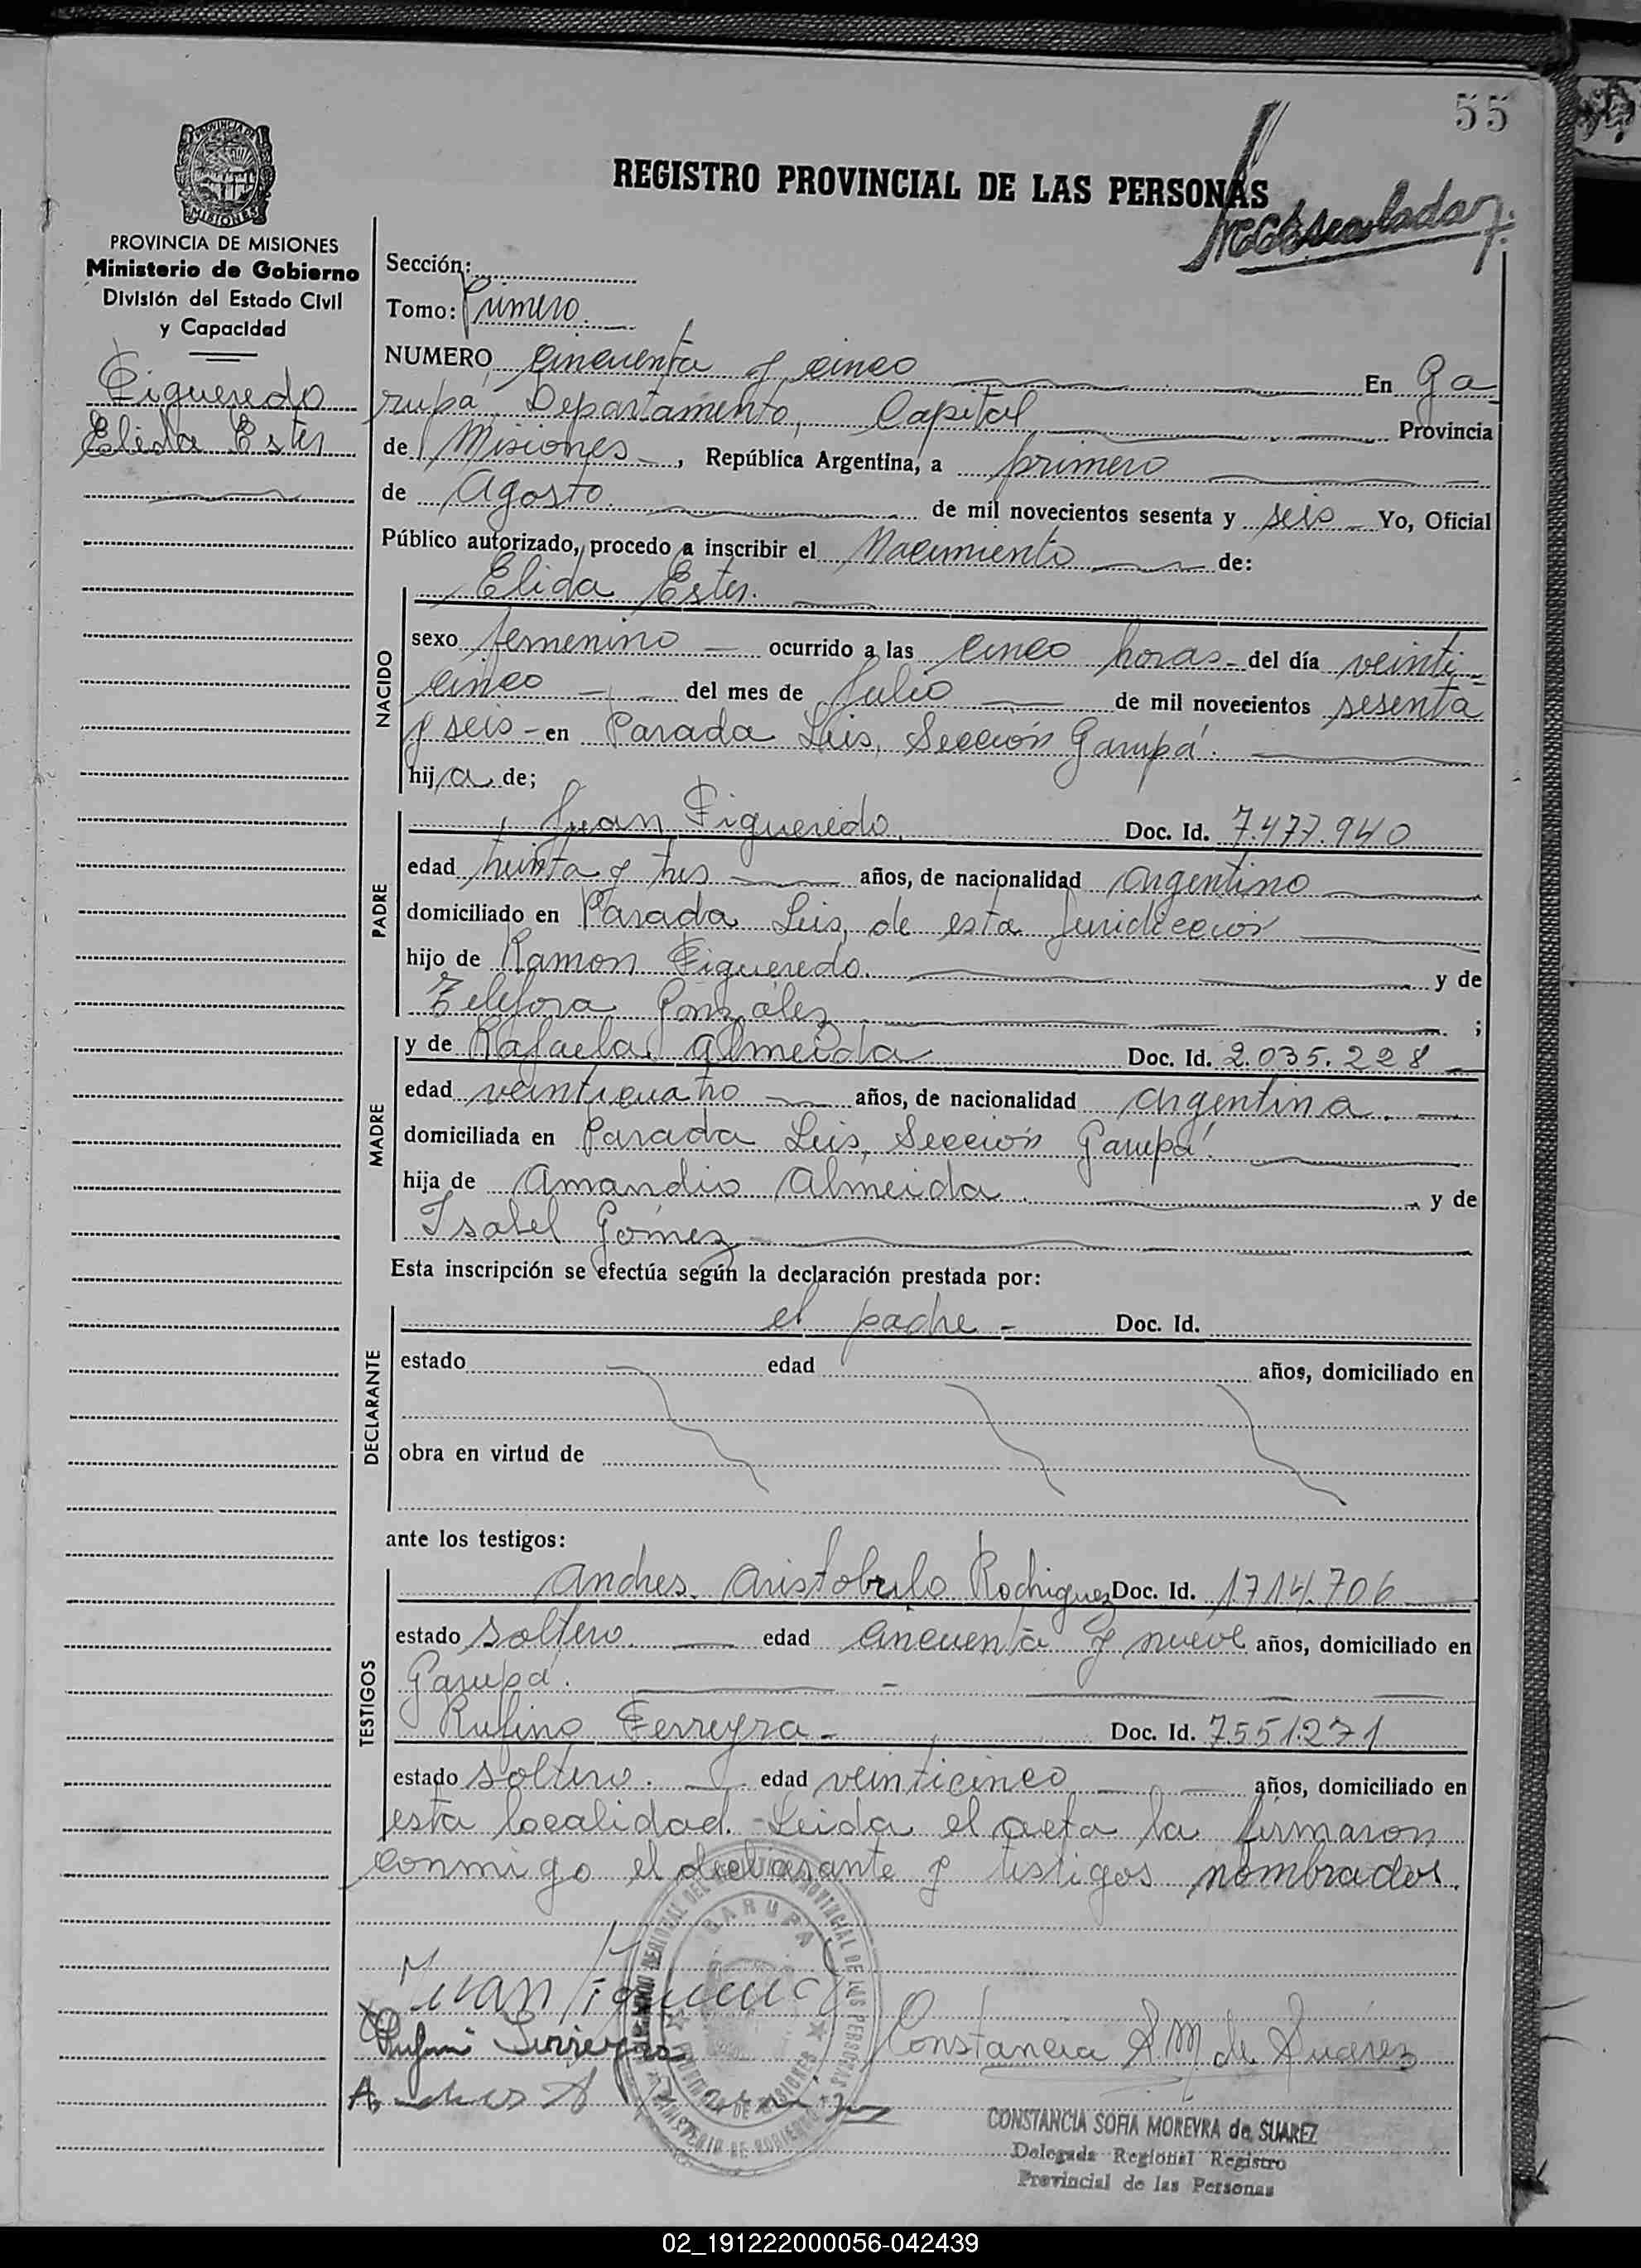 55
REGISTRO PROVINCIAL DE LAS PERSONAS
PROVINCIA DE MISIONES
MISIONES
PROVINCIA DE MISIONES
Ministerio de Gobierno
División del Estado Civil
y Capacidad
Figueredo
Elida Ester
Sección:
Tomo: Primero
NUMERO cincuenta y cinco En Ga
rupá, Departamento, Capital Provincia
de Misiones, República Argentina, a primero
de Agosto de mil novecientos sesenta y seis Yo, Oficial
Público autorizado, procedo a inscribir el Nacimiento de:
Elida Ester.
NACIDO
sexo femenino ocurrido a las cinco horas del día veinti-
cinco del mes de Julio de mil novecientos sesenta
y seis - en Parada Leis, Sección Garupá.
hija de;
PADRE
Juan Figueredo, Doc. Id. 7.477.940
edad treinta y tres años, de nacionalidad argentino
domiciliado en Parada Leis, de esta Juridicción
hijo de Ramon Figueredo. y de
Telefora Gonzalez ;
MADRE
y de Rafaela Almeida Doc. Id. 2.035.228
edad veinticuatro años, de nacionalidad argentina.
domiciliada en Parada Leis, Sección Garupá.
hija de Amandio Almeida y de
Isabel Gómez
Esta inscripción se efectúa según la declaración prestada por:
DECLARANTE
el padre - Doc. Id.
estado edad años, domiciliado en
obra en virtud de
ante los testigos:
TESTIGOS
Andres Aristobulo Rodriguez Doc. Id. 1.714.706
estado soltero. edad cincuenta y nueve años, domiciliado en
Garupá.
Rufino Ferreyra - Doc. Id. 7.551.271
estado soltero. edad veinticinco años, domiciliado en
esta localidad. - Leida el acta la firmaron
conmigo el declarante y testigos nombrados.
GARUPA
PROVINCIA DE MISIONES
MINISTERIO DE GOBIERNO
Juan Figueredo
Rufino Ferreyra
Constancia S M de Suárez
Andres A
CONSTANCIA SOFIA MOREYRA de SUAREZ
Delegada Regional Registro
Provincial de las Personas
02_191222000056-042439